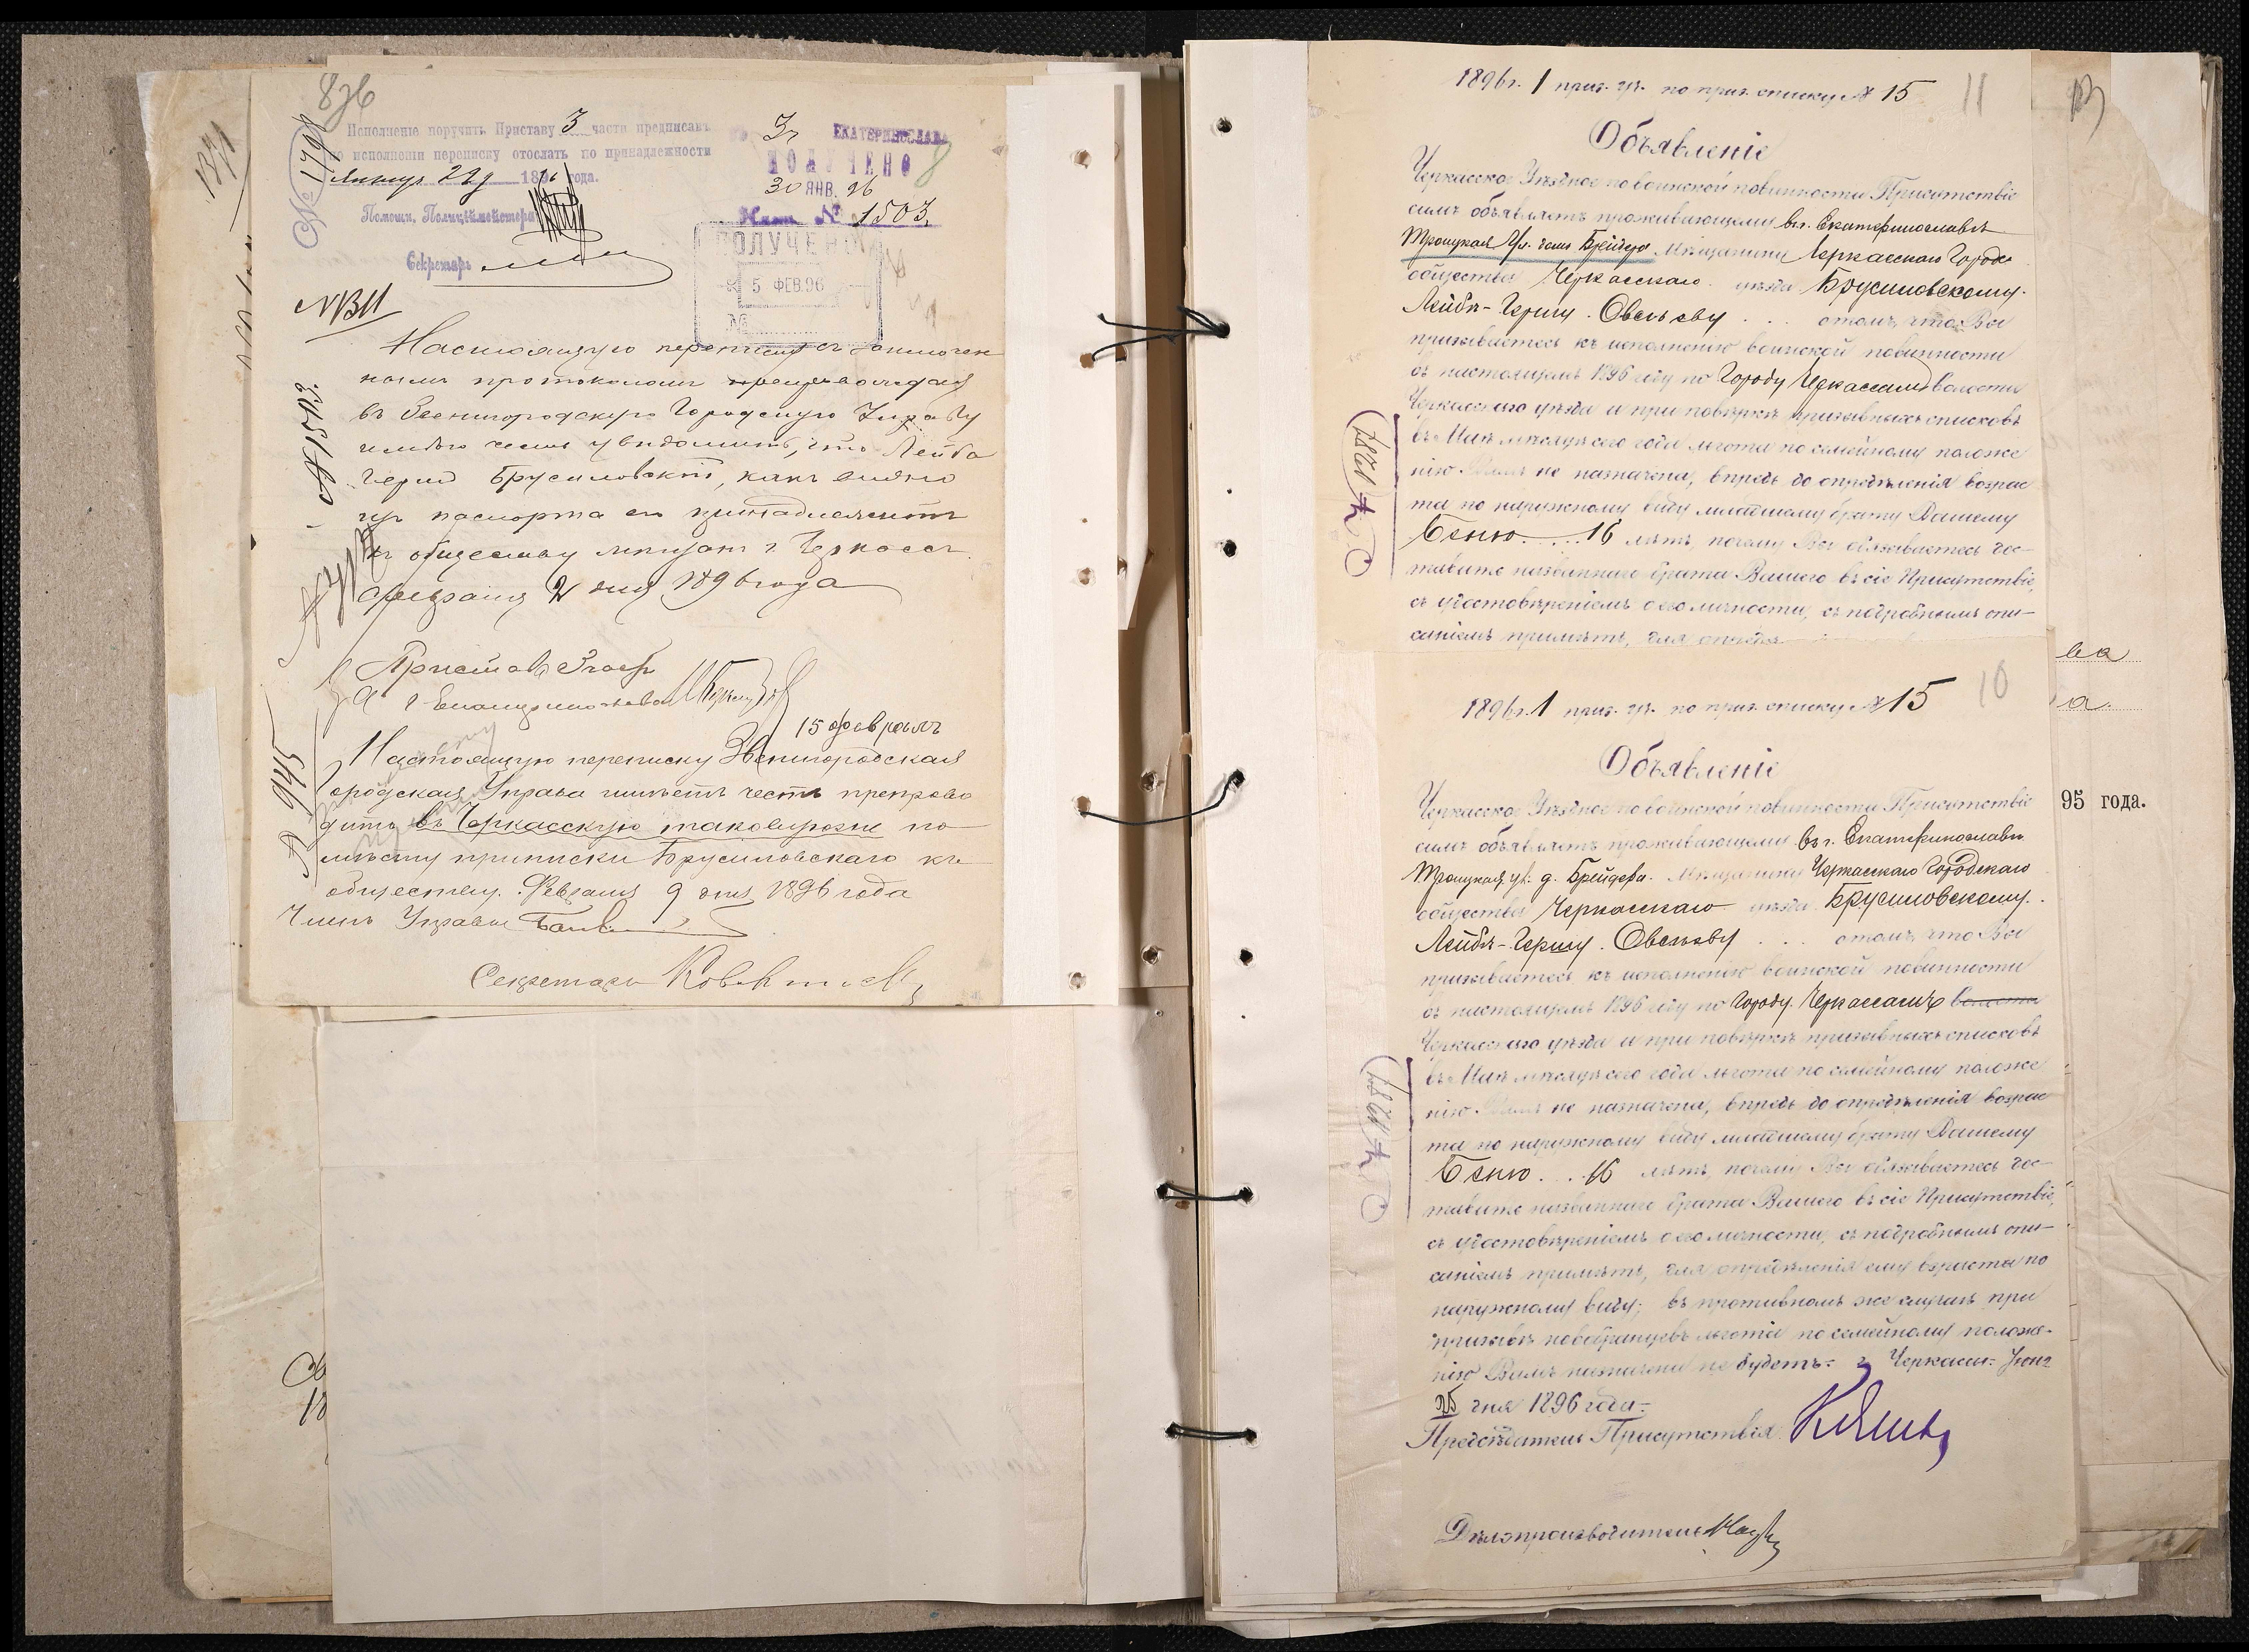 836
1371
Исполненіе поручить Приставу 3 части предписавъ
по исполненіи переписку отослать по принадлежности
Января 29 д 1896 года.
Помощн. Полиціймейстера
Секретарь
№ 1798
3 ч ЕКАТЕРИНОСЛАВА
ПОЛУЧЕНО
30 ЯНВ. 96
№ 1503
8
ПОЛУЧЕНО
5 ФЕВ.96
№
МВД
№ 1503.
Настоящую переписку съ
нымъ протоколомъ препровождая
въ Звенигородскую Городскую Управу
имѣю честь увѣдомить, что Лейба
Герш Брусиловскій, какъ видно
изъ паспорта его принадлежитъ
къ обществу мѣщанъ г. Черкассъ.
Февраля 2 дня 1896 года
Приставъ 3 части
г Екатеринослава
15 Февраль
№ 945
Настоящую переписку Звенигородская
Городская Управа имѣетъ честь препрово
дить въ Черкасскую таковуюже по
мѣсту приписки Брусиловскаго къ
обществу. Февраля 9 дня 1896 года
Членъ Управы
Секретарь
1896 г. 1 приз. уч. по приз. списку № 15
11
Объявленіе
Черкасское Уѣздное по воинской повинности Присутствіе
симъ объявляетъ проживающему въ г. Екатеринославѣ
Троицкая ул. домъ Брейдера Мѣщанину Черкасскаго Городс
общества Черкасскаго уѣзда Брусиловскому.
Лейбѣ-Гершу. Овсееву . . . о томъ, что Вы
призываетесь къ исполненію воинской повинности
въ настоящемъ 1896 году по Городу Черкассамъ волости
Черкасскаго уѣзда и при повѣркѣ призывныхъ списковъ
въ Маѣ мѣсяцѣ сего года льгота по семейному положе
нію Вамъ не назначена, впредь до опредѣленія возрас
та по наружному виду младшему брату Вашему
Беню. . . . 16 лѣтъ, почему Вы обязываетесь дос-
тавить названнаго брата Вашего въ сіе Присутствіе,
съ удостовѣреніемъ о его личности, съ подробнымъ опи-
саніемъ примѣтъ, для
1896 г. 1 приз. уч. по приз. списку № 15
10
Объявленіе
Черкасское Уѣздное по воинской повинности Присутствіе
симъ объявляетъ проживающему въ г. Екатеринославѣ
Троицкая ул. д. Брейдера. Мѣщанину Черкасскаго Городскаго
общества Черкасскаго уѣзда Брусиловскому.
Лейбѣ-Гершу. Овсееву . . . о томъ что Вы
призываетесь къ исполненію воинской повинности
въ настоящемъ 1896 году по Городу Черкассамъ волости
Черкасскаго уѣзда и при повѣркѣ призывныхъ списковъ
въ Маѣ мѣсяцѣ сего года льгота по семейному положе
нію Вамъ не назначена, впредь до опредѣленія возрас
та по наружному виду младшему брату Вашему
Беню. . . 16 лѣтъ, почему Вы обязываетесь дос-
тавить названнаго брата Вашего въ сіе Присутствіе,
съ удостовѣреніемъ о его личности, съ подробнымъ опи-
саніемъ примѣтъ, для опредѣленія ему возраста по
наружному виду; въ противномъ же случаѣ при
призывѣ новобранцевъ льгота по семейному положе-
нію Вамъ назначена не будетъ. г. Черкасы. Іюня
25 дня 1896 года.
Предсѣдатель Присутствія
Дѣлопроизводитель
ва
а.
95 года.